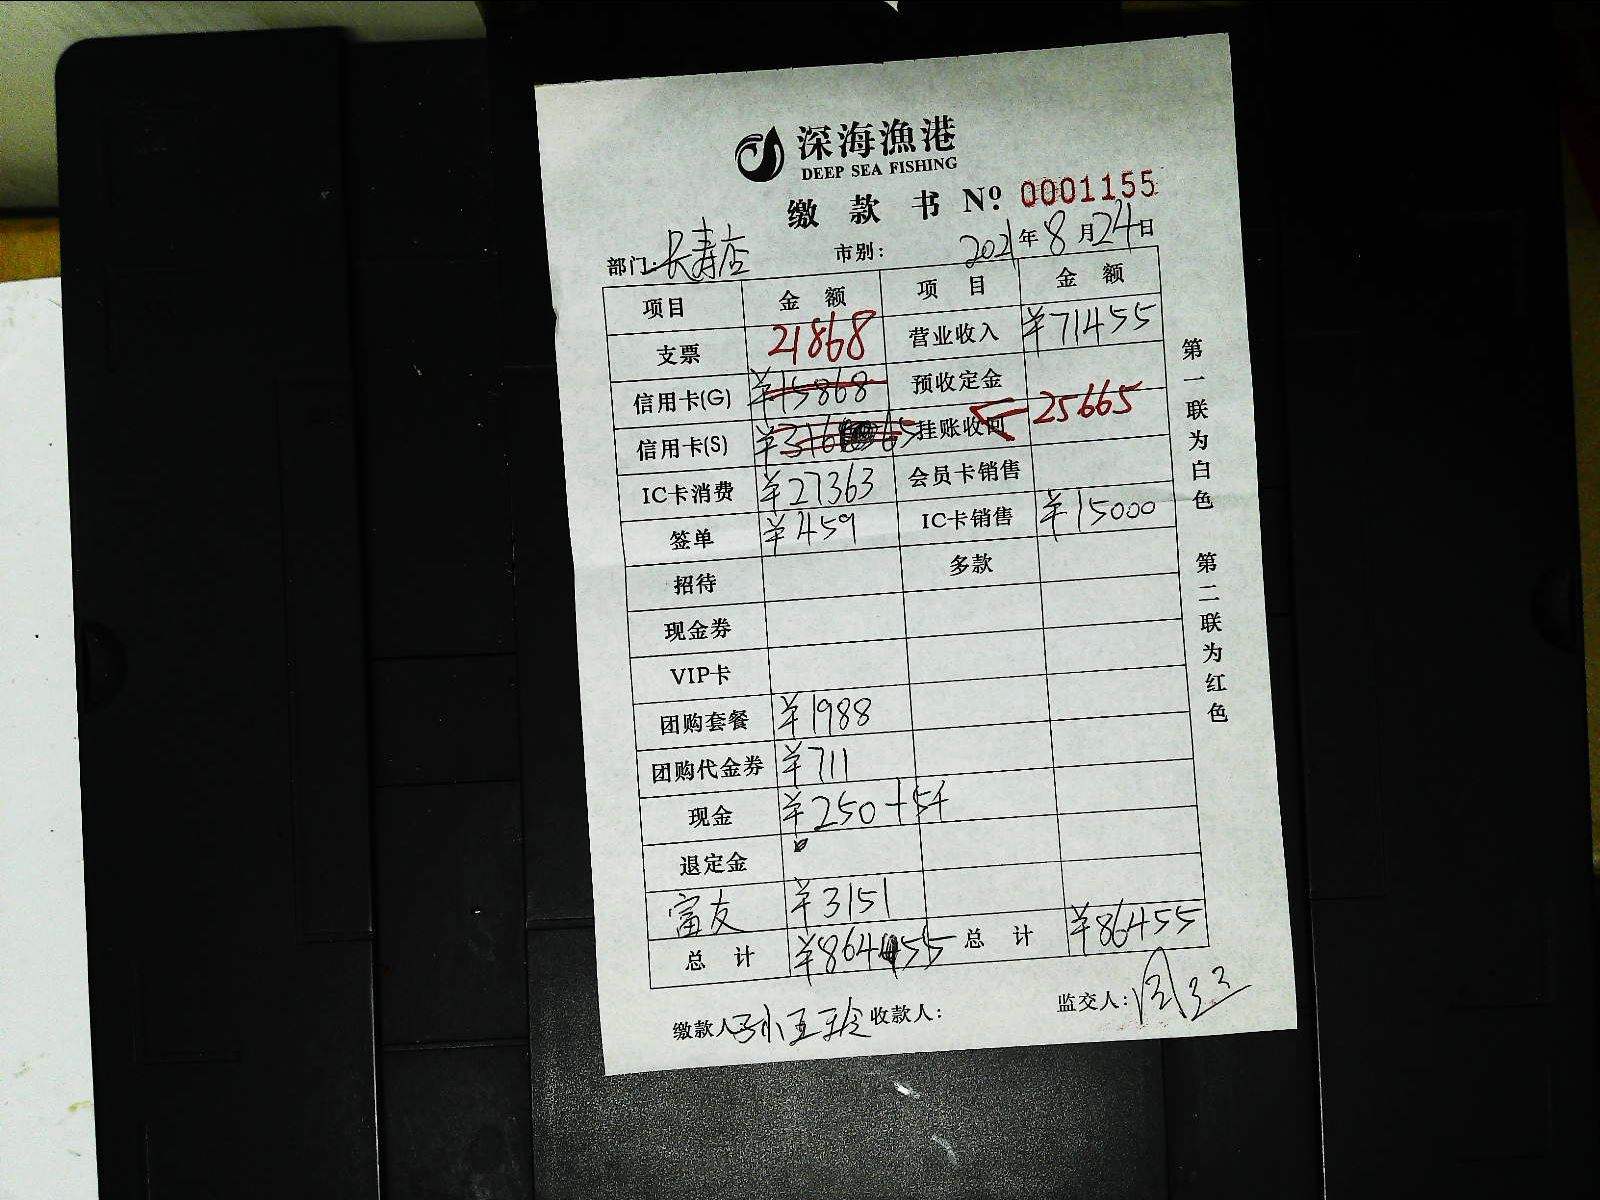 深海漁港
DEEP SEA FISHING
缴款书 Nº: 0001155
部门: 长寿店 市别: 2021年8月24日
项目 金额 项目 金额
支票 21868 营业收入 ¥71455
信用卡(G) ¥15868 预收定金
信用卡(S) ¥316 65 挂账收回 25665
IC卡消费 ¥27363 会员卡销售
签单 ¥459 IC卡销售 ¥15000
招待 多款
现金券
VIP卡
团购套餐 ¥1988
团购代金券 ¥711
现金 ¥250+5千
退定金
富友 ¥3151
总计 ¥86455 总计 ¥86455
缴款人: 收款人: 监交人:
第一联为白色 第二联为红色